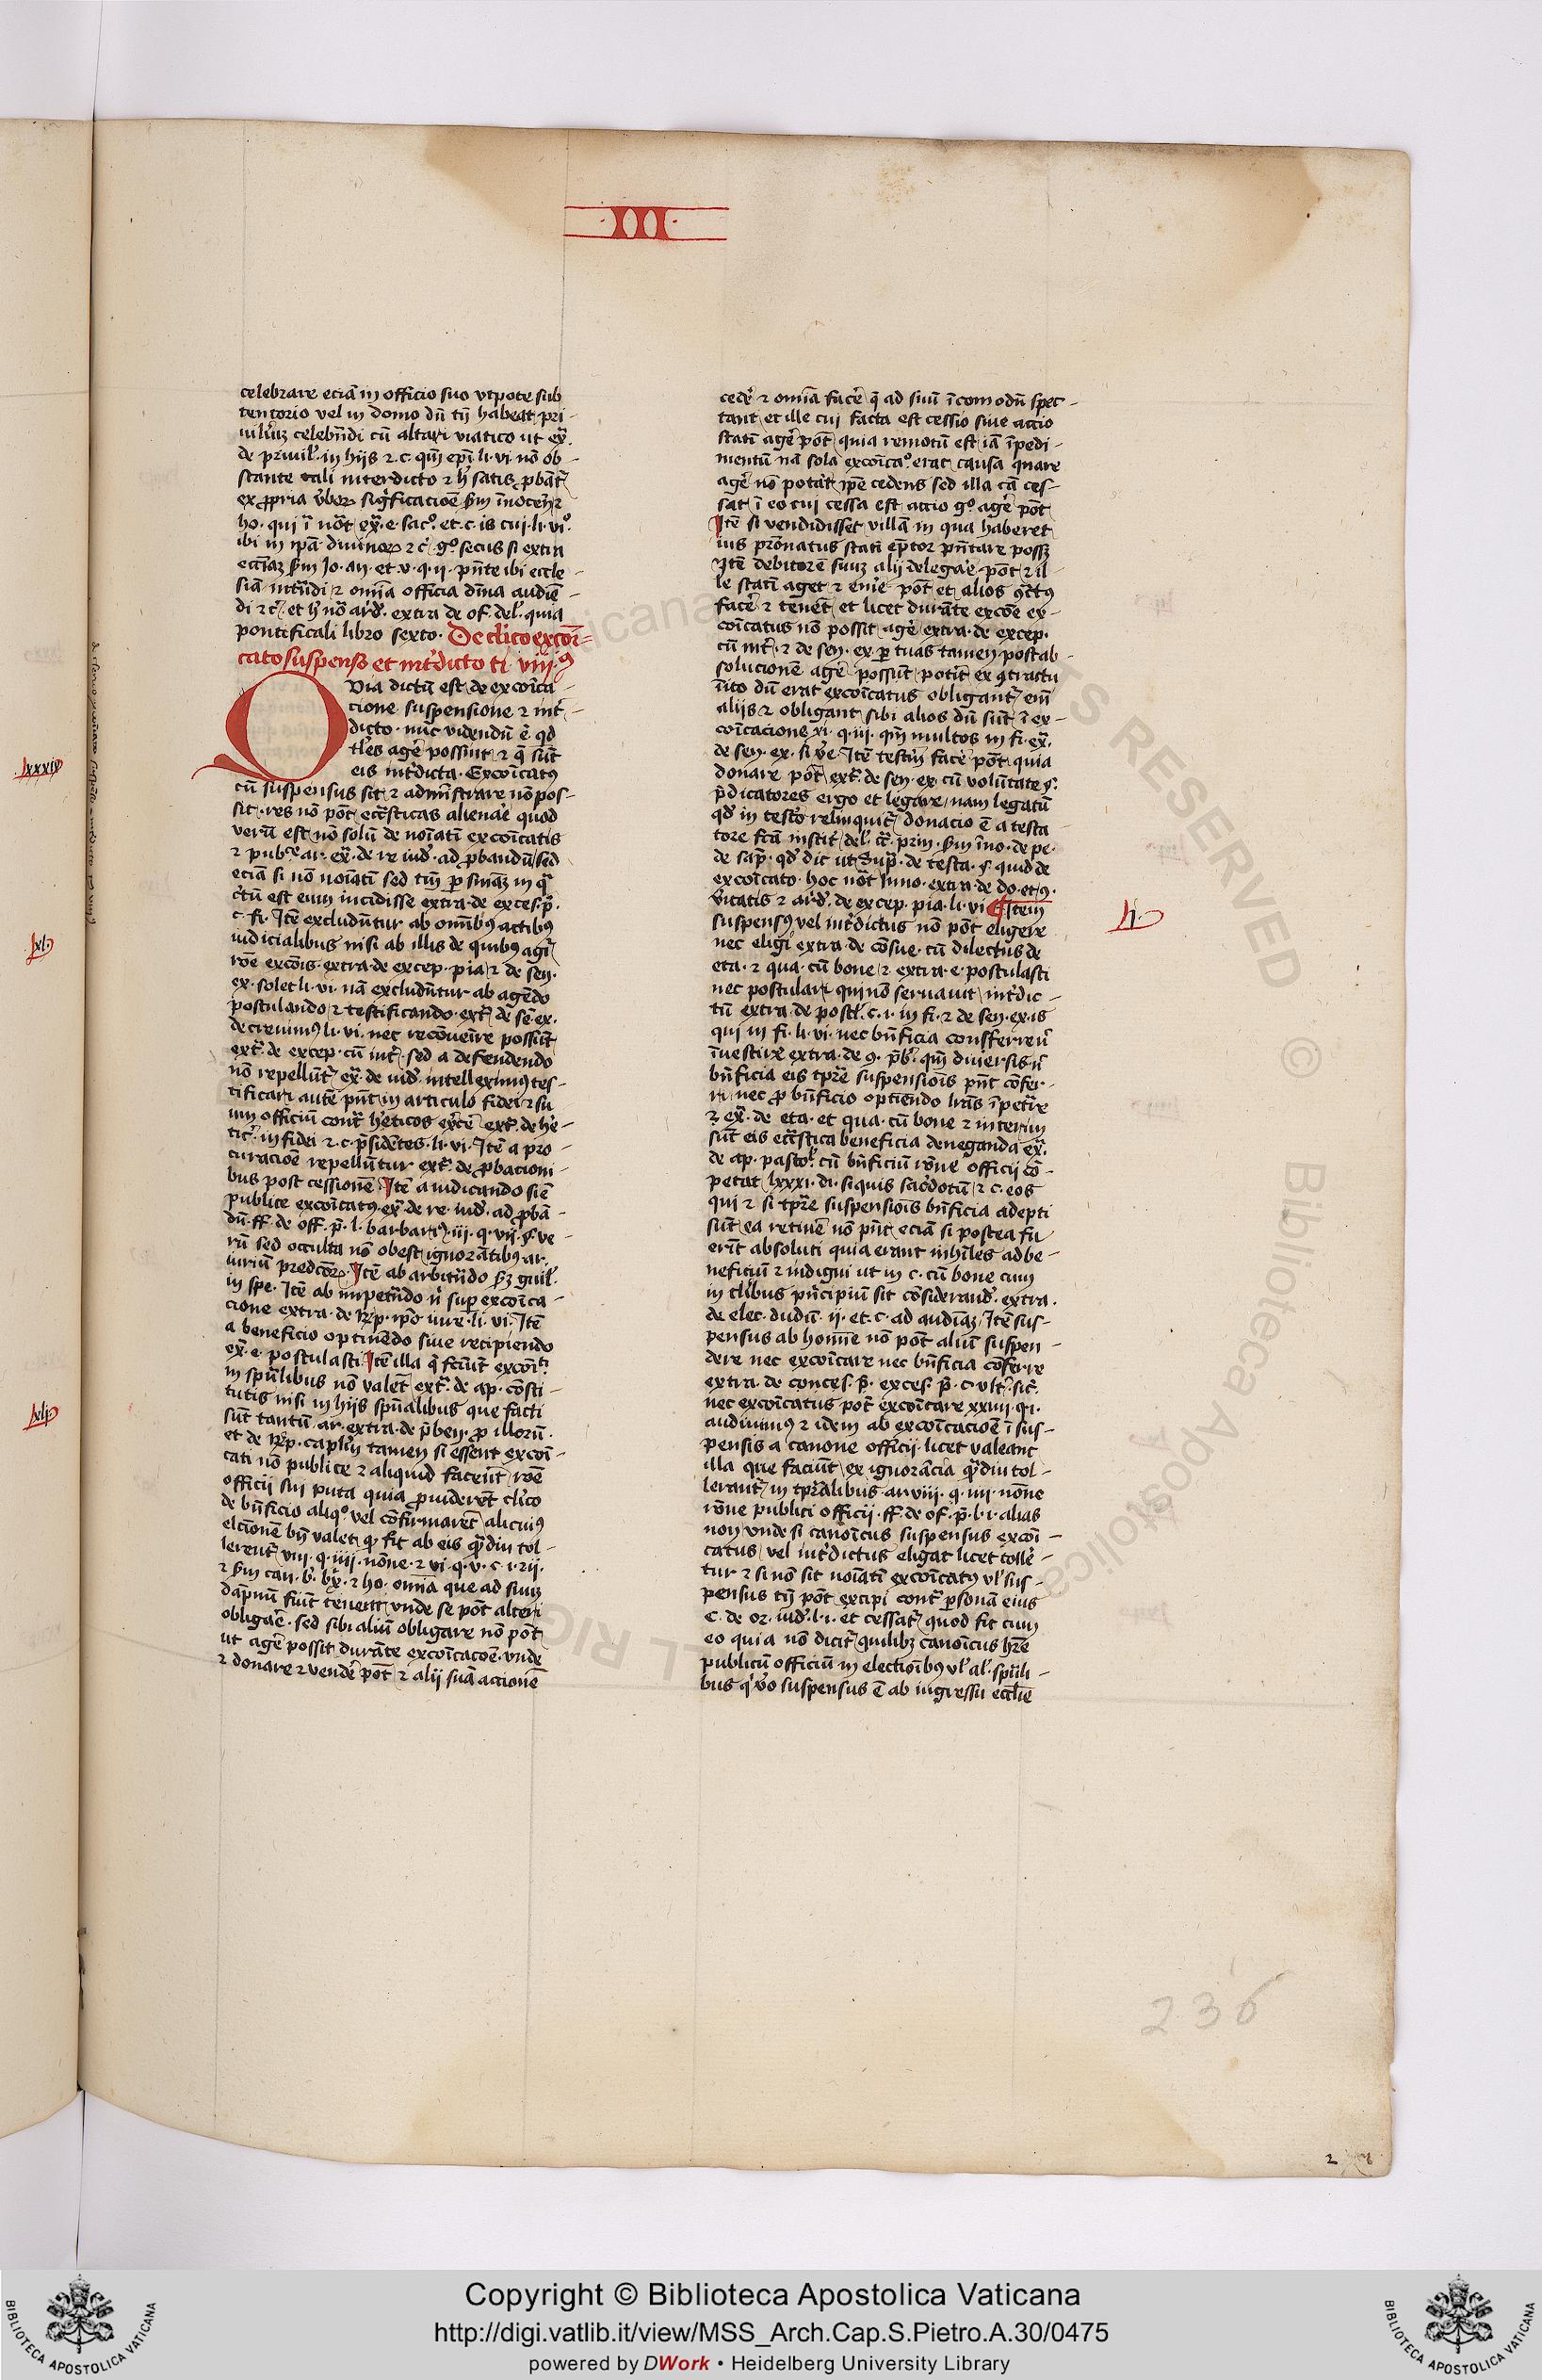 ·III·
celebrare eciā in officio suo vtpote sub
tentorio vel in domo dū tn̄ habeat pri
uil'iuz celebrādi cū altari viatico ut ex̄.
de priuil'. in hijs ⁊ c. qm̄ ep̄i li. vi nō ob
stante tali interdicto ⁊ h' satis ꝓbat᷑
ho. qui ī nōt ex̄. e. sac°. et. c. is cui. li. vi°.
siā int᷑ndi ⁊ omīa officia dīna audiē
di ⁊ c̄. et h' nō ar̄d'. extra de of. del'. quia
pontificali libro sexto. De clico excōī
cato suspenso et int'dicto ti. viij.
Quia dictū est de excōīca
cione suspensione ⁊ int'
dicto. nūc videndū ē qd
tl'es agē possint ⁊ q̄ sūt
eis int'dicta. Excōīcatꝰ
cū suspensus sit ⁊ admīstrare nō pos
sit. res nō pōt eccl'iasticas alienāe quod
verū est nō solū de noīatī excōīcatis
⁊ pub'ce ar. ex̄. de re iud'. ad ꝓbandū sed
eciā si nō noīatī sed tm̄ ꝑ smāz in q̄
c'tū est eum incidisse extra. de exces. p̄.
c. fi. Itē excludūtur ab omībꝰ actibꝰ
iudicialibus nisi ab illis de quibꝰ agit᷑
rōe excōis. extra. de excep. pia ⁊ de sen.
ex. solet li. vi. nā excludūtur ab agēdo
postulando ⁊ testificando. ext̄. de sē ex.
decreuimꝰ li. vi. nec recōueīre possūt
ext̄. de excep. cū int̄. sed a defendendo
nō repellūt᷑ ex̄. de iud'. intelleximꝰ tes
tificari autē pn̄t in articulo fidei ⁊ su
um officiū cont̄ h'eticos exc'ē ext̄. de h'e
tic̄. in fidei ⁊ c. p̄sidētes. li. vi. Itē a pro
curacioē repellūtur ext̄. de ꝓbacioni
bus post cessionē. Itē a iudicando siē
publice excōīcatꝰ. ex̄. de re. iud'. ad ꝓbā
dū. ff. de off. p̄. l. barbariꝰ. iii. q. vij. §. ve
rū sed occulta nō obest ignorātibꝰ ar.
iuriū predcōꝝ. Itē ab arbit᷑ndo sz guil'.
in spe. Itē ab impet᷑ndo n̄ sup excōīca
cione extra. de rescp. ipō iure. li. vi. Itē
a beneficio optinēdo siue recipiendo
ex̄. e. postulasti. Itē illa q̄ faciūt excōīti
in spūalibus nō valēt ext̄. de ap. cōsti
tutis nisi in hijs spūalibus que facti
sūt tantū ar. extra. de p̄ben. ꝓ illorū.
et de rescp. capl'm tamen si essent excōī
cati nō publice ⁊ aliquid facerūt rōe
officii sui puta quia ꝓuiderēt cl'ico
de bn̄ficio aliq° vel cōfirmarēt alicuiꝰ
elcionē bn̄ valet qꝛ fit ab eis q̄diu tol
lerent᷑ viii. q. iiij. nōne. ⁊ vi. q. v. c. i. ⁊ ij.
dāpnū fiūt tenent vnde se pōt alteri
obligāe. sed sibi aliū obligare nō pōt
ut agē possit durāte excōīcacōē. vnde
⁊ donare ⁊ vende' pōt ⁊ alii suā accionē
cede' ⁊ omīa face' q̄ ad suū īcomodū spec
tant et ille cui facta est cessio siue accio
statī agē pōt quia remotū est iā īpedi
mentū nā sola excōīca°. erat causa quare
age' nō potāt ip̄e cedens sed illa cā ces
sat ī eo cui cessa est accio g° age' pōt
Itē si vendidisset villā in qua haberet
ius prōnatus statī ēptor pn̄tare possz
Itē debitorē suuz alij delegāe pōt ⁊ il
le statī aget ⁊ emē pōt et alios ꝯt᷑ctꝰ
face' ⁊ tenēt et licet durāte excōe ex
coīcatus nō possit agē extra. de excep.
cū int̄. ⁊ de sen. ex. ꝑ tuas tamen post ab
solucionē agē possūt potīt ex ꝯtractu
īīto dū erat excōīcatus obligant᷑ enī
alijs ⁊ obligant sibi alios dū sūt ī ex
cōīcacione xi. q. iii. qm̄ multos in fi. ex̄.
de sen. ex. si v'e. Itē testm̄ face' pōt quia
donare pōt ext̄. de sen. ex. cū volūtate §.
p̄dicatores ergo et legare nam legatū
qd' in testo relinquit᷑ donacio ē a testa
tore fcā
excōīcato. hoc nōt Inno. extra. de do. et ꝯ.
v'itatis ⁊ ar̄d'. de excep. pia. li. vi. Item
suspensꝰ vel int'dictus nō pōt eligere
nec eligi extra. de cōsue. cū dilectus de
eta. ⁊ qua. cū bone ⁊ extra. e. postulasti
nec postulari qui nō seruauit int'dic
tū extra. de postl'. c. i. in fi. ⁊ de sen. ex. is
qui in fi. li. vi. nec bn̄ficia confferre n̄
īuestire extra. de ꝯ. p̄b'. qm̄ diuersis n̄
bn̄ficia eis tp̄re suspensiōis pn̄t cōfer
ri nec ꝓ bn̄ficio optinendo lr̄as īpet᷑re
⁊ ex̄. de eta. et qua. cū bone ⁊ interim
sūt eis eccl'iastica beneficia deneganda ex̄.
de ap. pasto'. cū bn̄ficiū rōne officij cō
petat lxxxi. di. si quis sac'dotū ⁊ c. eos
qui ⁊ si tp̄re suspensiōis bn̄ficia adepti
sūt ea retinē nō pn̄t eciā si postea fu
erīt absoluti quia erant inhīles ad be
neficiū ⁊ indigni ut in c. cū bone cum
in tl'ibus pn̄cipiū sit cōsiderand'. extra.
de elec. dudū. ij. et. c. ad audiāz. Itē sus
pensus ab homīe nō pōt aliū suspen
dere nec excōīcare nec bn̄ficia cōferre
extra. de conces. p̄. exces. p̄. c. vlt̄. sic̄.
nec excōīcatus pōt excōīcare xxiiij. q. i.
audiuimꝰ ⁊ idem ab excōīcacioē ī sus
pensis a canone officij. licet valeant
illa que faciūt ex ignorācia q̄diu tol
lerant᷑ in tp̄ralibus ar. viii. q. iiij. nōne
rōne publici officij. ff. de of. p̄. l. i. alias
non vnde si canoīcus suspensus excōī
catus vel int'dictus eligat licet tolle
tur ⁊ si nō sit noīatī excōīcatꝰ vl' sus
pensus tn̄ pōt excipi cont̄ ꝑsonā eius
C. de or. iud'. l. i. et cessat᷑ quod fit cum
eo quia nō dicit᷑ quilibz canoīcus hr̄e
publicū officiū in electiōibꝰ vl' al'. spūli
bus q' v'o suspensus ē ab ingressu eccl'ie
lxxxix
xl
xli
ij
236
Copyright © Biblioteca Apostolica Vaticana
http://digi.vatlib.it/view/MSS_Arch.Cap.S.Pietro.A.30/0475
powered by DWork • Heidelberg University Library
BIBLIOTECA APOSTOLICA VATICANA
BIBLIOTECA APOSTOLICA VATICANA